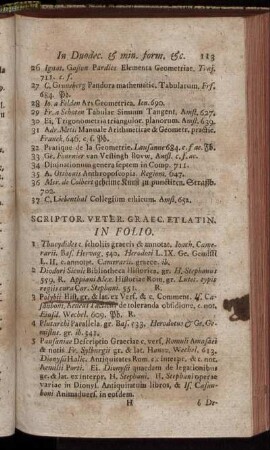 In Duodec. & min. form. &c. 113
26 Ignat. Gaston Pardies Elementa Geometriae. Traj.
711. c. f.
27 C. Gruneberg Pandora mathematic. Tabularum. Frf.
684. Pb.
28 Jo. a Felden Ars Geometrica. Jen. 690.
29 Fr. a Schoten Tabulae Sinuum Tangent. Amst. 627.
30 Ej. Trigonometria triangulor. planorum. Amst. 639.
31 Adr. Metii Manuale Arithmeticae & Geometr. practic.
Franek. 646. c. f. Pb.
32 Pratique de la Geometrie. Lausanne 684. c. f. Fb.
33 Ge. Fournier van Vestingh Bouw. Amst. c. f.
34 Diminutionum genera septem in Comp. 711.
35 A. Otthonis Anthroposcopia. Regiom. 647.
36 de Colberg geheime Kunst zu punctiren. Strassb.
702.
37 C. Liebenthal Collegium ethicum. Amst. 651.
SCRIPTOR. VETER. GRAEC. ET LATIN.
IN FOLIO.
1 Thucydides c. scholiis graecis & annotat. Joach. Camerarii.
Bas. Hervag. 540. Herodoti L. IX. Ge. Gemisti
L. II. c. annot. Camerarii. graece. ib.
2 Diodori Siculi Bibliotheca Historica, gr. H. Stephanus
559. R. Appiani Alex. Historiae Rom. gr. Lutet. typis
regiis cura Car. Stephani. 551. R.
3 Polybii Hist. gr. & lat. ex Vers. & c. Comment. If. Casauboni,
Aeneae Tacticus de toleranda obsidione, c. not.
Ejusd. Wechel. 609. Pb. R.
4 Plutarchi Parallela. gr. Bas. 533. Herodotus & Ge. Gemistus,
gr. ib. 541.
5 Pausaniae Descriptio Graeciae c. vers. Romuli Amasaei
& notis Fr. Sylburgii gr. & lat. Hanov, Wechel, 613.
Dionysii Halic. Antiquitates Rom. ex interpr. & c. not.
Aemilii Porti. Ej. Dionysii quaedam de legationibus
gr. & lat. ex interpr. H. Stephani. H. Stephani operae
variae in Dionys. Antiquitatum libros, & If. Casauboni
Animadvers. in eosdem
H 6 De-